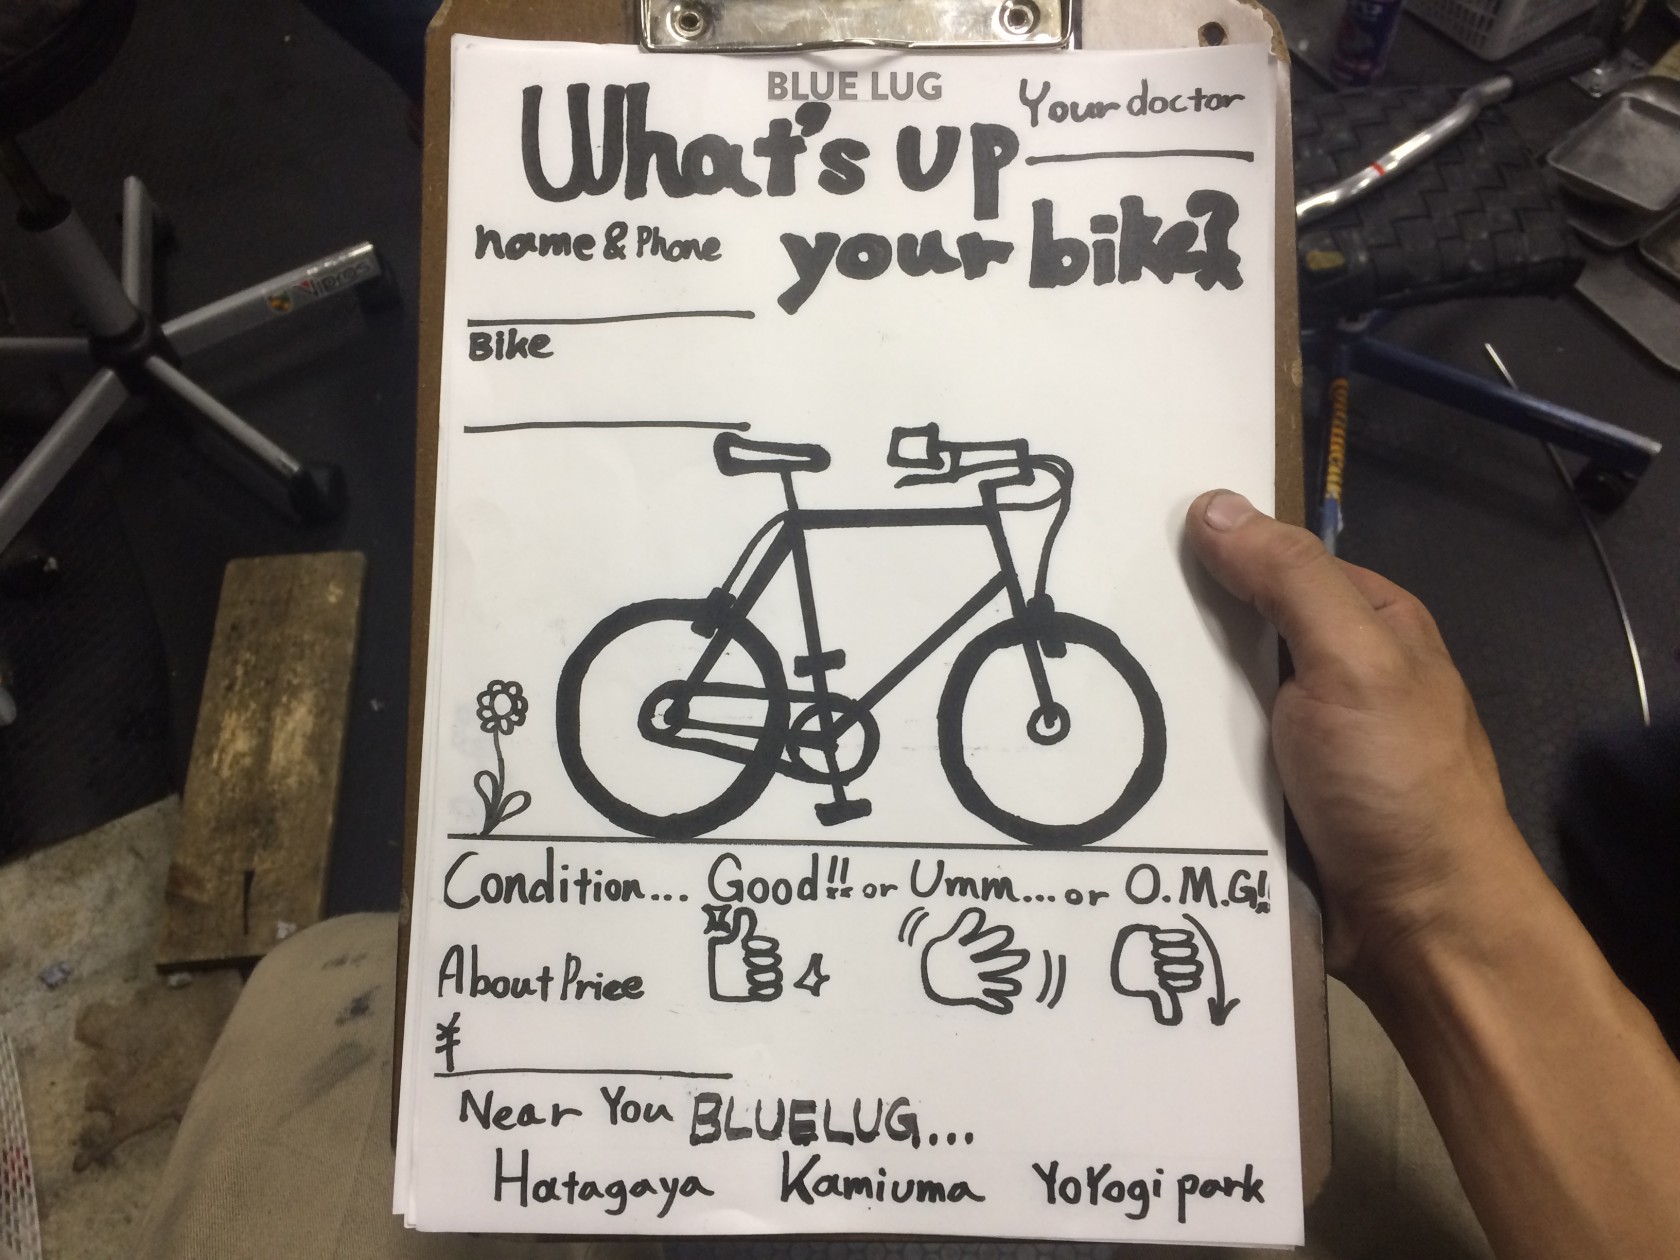 BLUE LUG
Your doctor
What's up
your bike?
name & Phone
Bike
Condition... Good!! or Umm... or O.M.G!!
About Price
¥
Near You BLUELUG...
Hatagaya Kamiuma YoYogi park